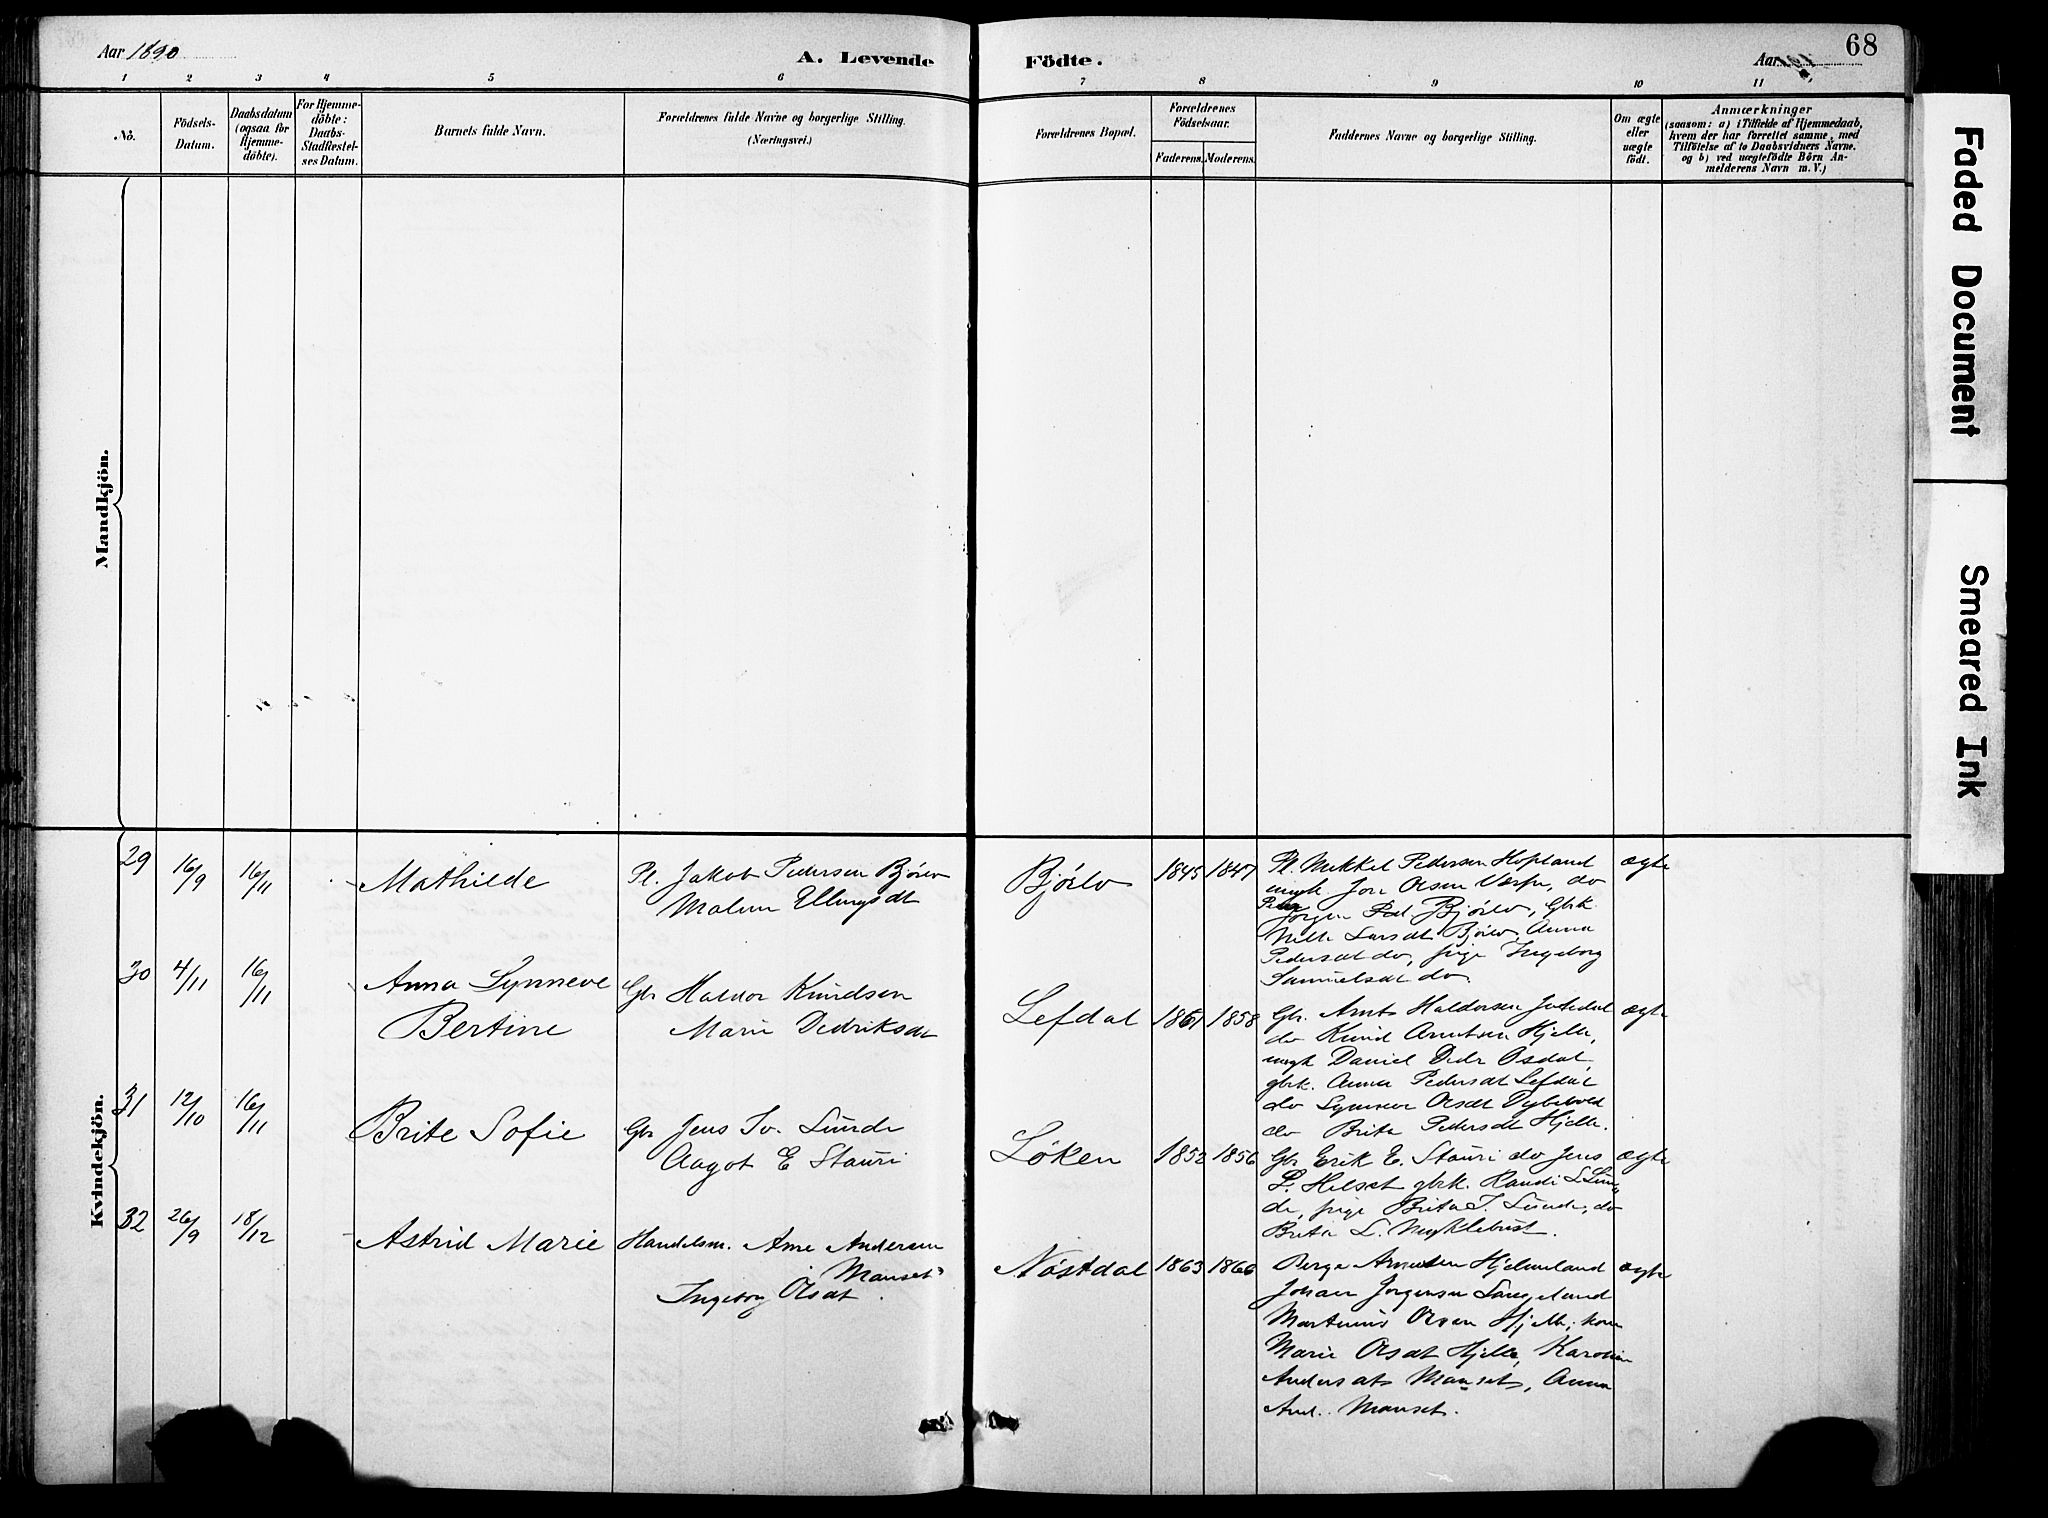 Aar 1890
A. Levende
Födte.
Aar
68
1 2 3 4 5 6 7 8 9 10 11
No.
Födsels-
Datum.
Daabsdatum
(ogsaa for
Hjemme-
döbte).
For Hjemme-
döbte:
Daabs-
Stadfæstel-
ses Datum.
Barnets fulde Navn.
Forældrenes fulde Navne og borgerlige Stilling.
(Næringsvei.)
Forældrenes Bopæl.
Forældrenes
Födselsaar.
Faderens. Moderens.
Faddernes Navne og borgerlige Stilling.
Om ægte
eller
uægte
födt.
Anmærkninger
(saasom: a) i Tilfælde af Hjemmedaab,
hvem der har forrettet samme, med
Tilföielse af to Daabsvidners Navne.
og b) ved uægtefödte Börn An-
melderens Navn m. V.)
Mandkjön.
Kvindekjön.
29 16/9 16/11 Mathilde
Pl. Jakob Pedersen Bjørlo
Malene Ellingsdt
Bjørlo 1845 1847
Pl. Mikkel Pedersen Hopland
ungk. Olsen do
Jørgen Ped. Bjørlo, Gbrk.
Larsdt Bjørlo, Anna
Pedersdt do, pige Ingeborg
Samuelsdt do.
ægte
30 4/11 16/11 Anna Synneve
Bertine
Gbr Haldor Knudsen
Marie Dedriksdt
Lefdal 1861 1858
Gbr. Arnt Haldorsen
do Knud Arntsen Hjelle,
ungk Daniel Dedr Osdal,
gbrk. Anna Pedersdt Lefdal
do Synneve Olsdt
do Brita Pedersdt Hjelle.
ægte
31 12/10 16/11 Brite Sofie
Gbr Jens Lunde
Aagot E Stauri
Løken 1852 1856
Gbr Erik E. Stauri do Jens
P. Helset gbrk. Randi L Lun
de, pige Brita J. Lunde, do
Brita L. Myklebust.
ægte
32 26/9 18/12 Astrid Marie
Handelsm. Arne Andersen
Manset
Ingeborg Olsdt.
Nøstdal 1863 1866
Berge Arnesen Hjelmeland
Johan Jørgensen
Martinus Olsen Hjelle, kone
Marie Olsdt Hjelle, Karoline
Andersdt Manset, Anna
And. Manset.
ægte
Faded Document
Smeared Ink